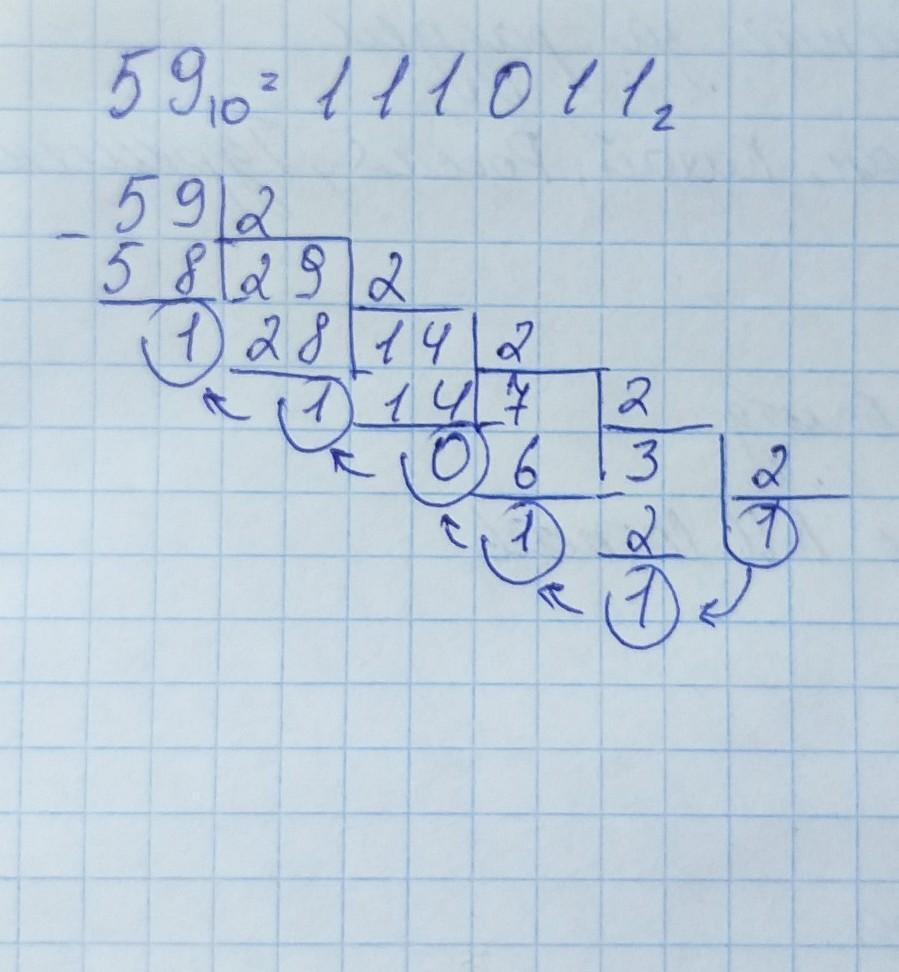 59₁₀ = 111011₂
- 59 2
58 29 2
1 28 14 2
1 14 7 2
0 6 3 2
1 2 1
1